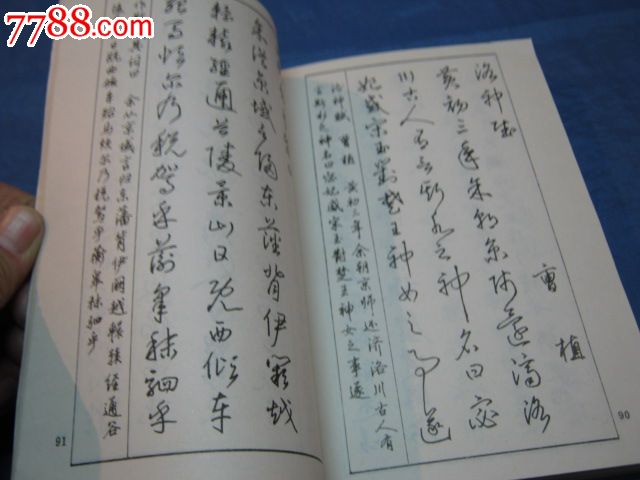 7788.com
洛神赋
曹植
黄初三年余朝京师还济洛
川古人有言斯水之神名曰宓
妃感宋玉对楚王神女之事遂
洛神赋 曹植 黄初三年余朝京师还济洛川古人有
言斯水之神名曰宓妃感宋玉对楚王神女之事遂
90
余从京域言归东藩背伊阙越
轘辕经通谷陵景山日既西倾车
殆马烦尔乃税驾乎蘅皋秣驷乎
其词曰 余从京域言归东藩背伊阙越轘辕经通谷
陵景山日既西倾车殆马烦尔乃税驾乎蘅皋秣驷乎
91